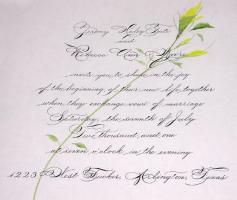 Jeremy
and
Rebecca Ann
invite you to share in the joy
of the beginning of their new life together
when they exchange vows of marriage
Saturday, the seventh of July
Two thousand, and one
at seven o'clock in the evening
1223 West Tucker, Arlington, Texas